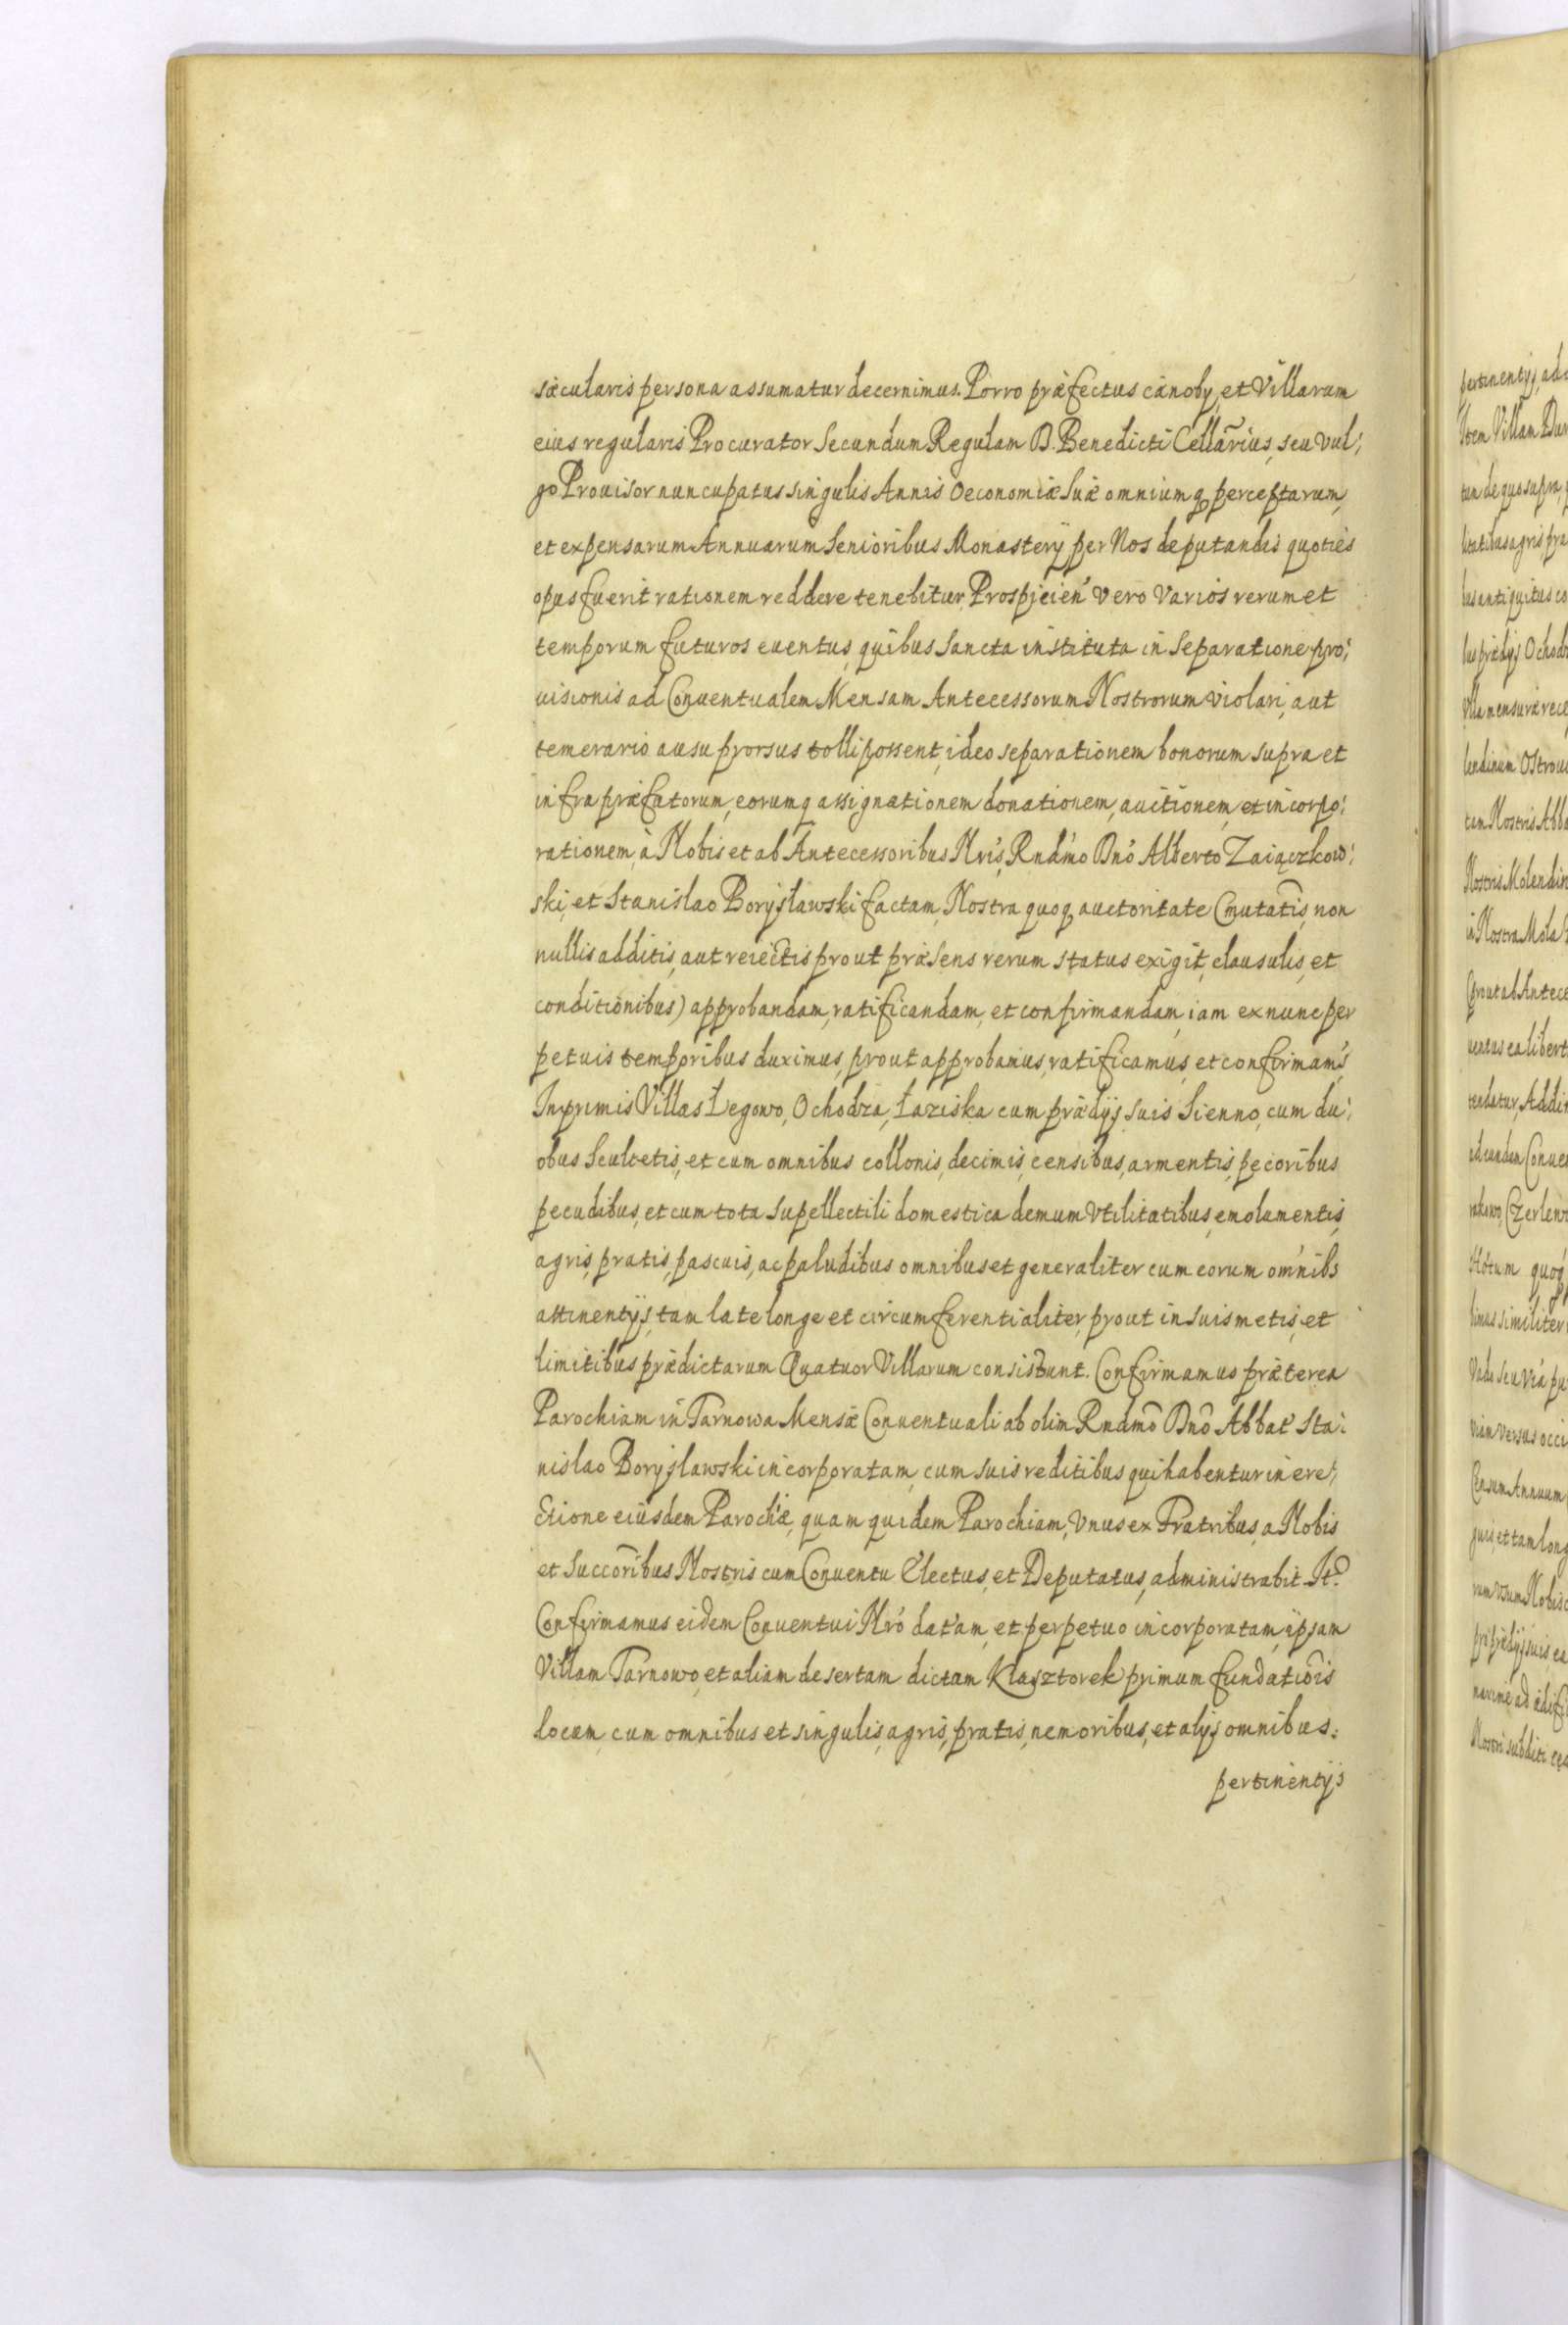 sæcularis persona assumatur decernimus. Porro præfectus cænoby, et Villarum
eius regularis Procurator Secundum Regulam D. Benedicti Cellārius, seu vul:
go Prouisor nuncupatus singulis Annis Oeconomiæ Suæ omniumq perceptarum,
et expensarum Annuarum Senioribus Monastery per Nos deputandis quoties
opus fuerit rationem reddere tenebitur. Prospicien' vero varios rerum et
temporum futuros euentus, quibus Sancta instituta in Separatione pro:
uisionis ad Conuentualem Mensam Antecessorum Nostrorum violari, aut
temerario ausu prorsus tolli possent, ideo separationem bonorum supra et
infra præfatorum, eorumq assignationem donationem, auctionem, et incorpo:
rationem, à Nobis et ab Antecessoribus Nris, Rndmo Dno Alberto Zaiączkow:
ski, et Stanislao Boryslawski factam, Nostra quoq auctoritate (mutatis, non
nullis additis, aut reiectis prout præsens rerum status exigit, clausulis, et
conditionibus) approbandam, ratificandam, et confirmandam, iam ex nunc per
petuis temporibus duximus, prout approbamus, ratificamus, et confirmam's
Inprimis Villas Łegowo, Ochodza, Łaziska cum prædijs suis Sienno, cum du:
obus Scultetis, et cum omnibus collonis, decimis, censibus, armentis, pecoribus
pecudibus, et cum tota Supellectili domestica demum Vtilitatibus, emolumentis,
agris, pratis, pascuis, ac paludibus omnibus et generaliter cum eorum omnibs
attinentijs, tam late longe et circumferentialiter, prout in suis metis, et
limitibus prædictarum Quatuor Villarum consistunt. Confirmamus præterea
Parochiam in Tarnowa Mensæ Conuentuali ab olim Rndmō Dnō Abbat' Sta:
nislao Boryslawski incorporatam, cum suis reditibus qui habentur in ere:
ctione eiusdem Parochiæ, quam quidem Parochiam, Vnus ex Fratribus, a Nobis
et Succōribus Nostris cum Conuentu Electus, et Deputatus, administrabit. It.
Confirmamus eidem Conuentui Nrō datam, et perpetuo incorporatam, ipsam
Villam Tarnowo, et aliam desertam dictam Klasztorek primum fundatiōis
locum, cum omnibus et singulis, agris, pratis, nemoribus, et alijs omnibus:
pertinentijs